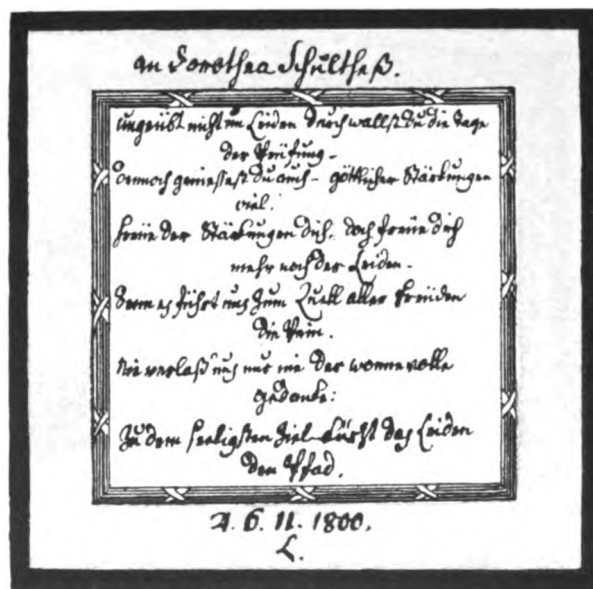 An Dorothea Schultheß.
Ungeübt nicht im Leiden durchwallst du die Tage
der Prüfung –
Dennoch genießest du auch – göttlicher Stärkungen
viel!
Freüe der Stärkungen dich. doch freüe dich
mehr noch der Leiden –
Denn es führt uns zum Quell aller Freüden
die Pein.
Nie verlaß uns nur nie der wonnevolle
Gedanke:
Zu dem seeligsten Ziel kürzt das Leiden
den Pfad.
6. 11. 1800.
L.